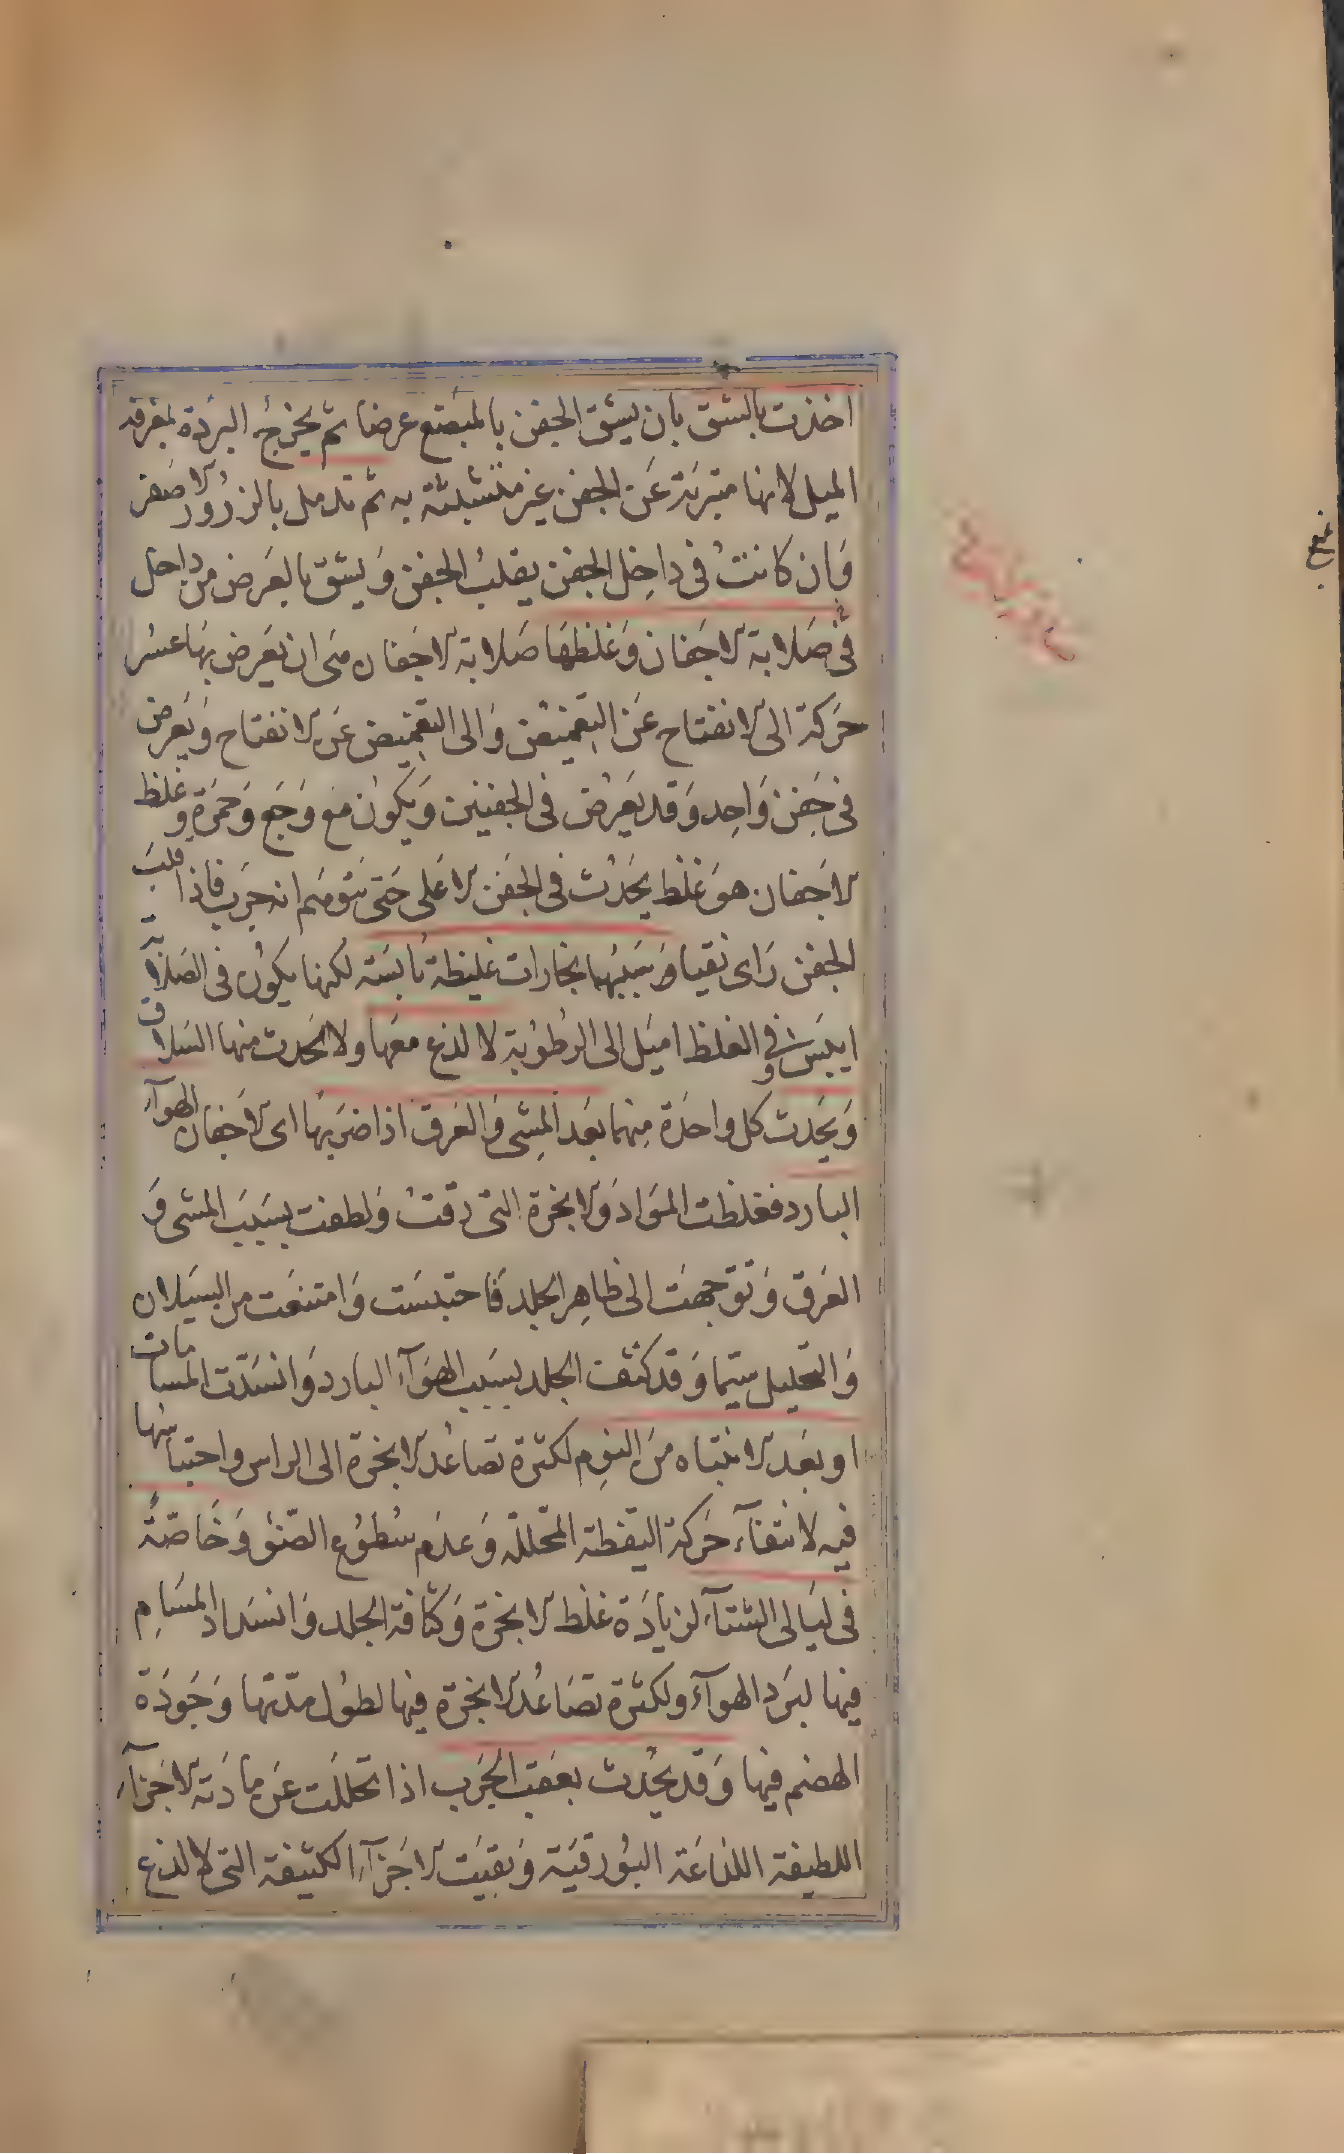 اخذت بالشق بان يشق الجفن بالمبضع عرضا ثم يخرج البردة بمغرفة
الميل لانها متبرية عن الجفن غير متشبثة به ثم تدمل بالذرور الاصفر
وان كانت في داخل الجفن يقلب الجفن ويشق بالعرض من داخل
في صلابة الاجفان وغلظها صلابة الاجفان هي ان يعرض بها عسر
حركة الى الانفتاح عن التغميض والى التغميض عن الانفتاح ويعرض
في جفن واحد وقد يعرض في الجفنين ويكون مع وجع وحمرة وغلظ
الاجفان هو غلظ يحدث في الجفن الاعلى حتى يتوهم انه جرب فاذا قلب
الجفن راى نقيا وسببهما بخارات غليظة يابسة لكنها يكون في الصلابة
ايبس وفي الغلظ اميل الى الرطوبة لا لذع معها ولا يحدث منها السلاق
ويحدث كل واحدة منهما بعد المشي والعرق اذا ضربها اى الاجفان الهوآء
البارد فغلظت المواد والابخرة التى رقت ولطفت بسبب المشي و
العرق وتوجهت الى ظاهر الجلد فاحتبست وامتنعت من السيلان
والتحليل سيما وقد كثفت الجلد بسبب الهوآء البارد وانسدت المسامات
او بعد الانتباه من النوم لكثرة تصاعد الابخرة الى الراس واحتباسها
فيه لانتفآء حركة اليقظة المحللة وعدم سطوع الضوء وخاصة
في ليالى الشتآء لزيادة غلظ الابخرة وكثافة الجلد وانسداد المسام
فيها لبرد الهوآء ولكثرة تصاعد الابخرة فيها لطول مدتها وجودة
الهضم فيها وقد يحدث بعقب الجرب اذا تحللت عن مادته الاجزآء
اللطيفة اللذاعة البورقية وبقيت الاجزآء الكثيفة التى لا لذع